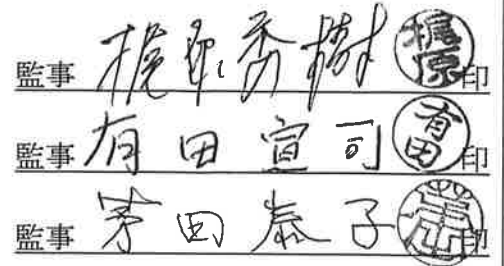 監事 梶原秀樹 梶原 印
監事 有田宣司 有田 印
監事 茅田泰子 印